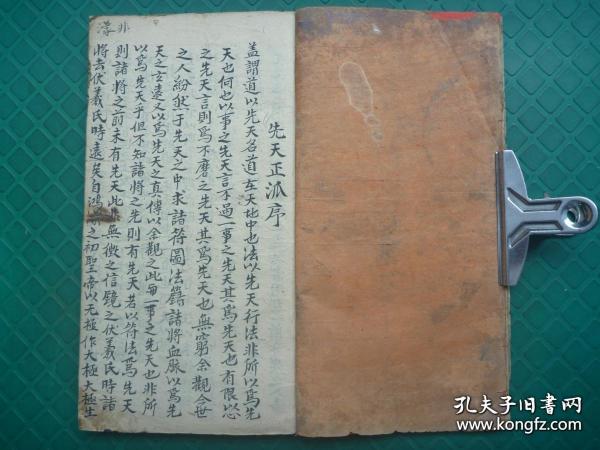 先天正派序
蓋謂道以先天名道在天地中也法以先天行法非所以為先
天也何也以事之先天言不過一事之先天其為先天也有限以
之先天言則為不磨之先天其為先天也無窮余觀今世
之人紛然于先天之中求諸符圖法籙諸將血脉以為先
天之玄遠又以為先天之真傳以余觀之此每一事之先天也非所
以為先天乎但不知諸將之先則有先天若以符法為先天
則諸將之前未有先天此無徵之信鏡之伏羲氏時諸
將去伏羲氏時遠矣自鴻之初聖帝以无極作大極大極生
非
孔夫子旧書网
www.kongfz.com